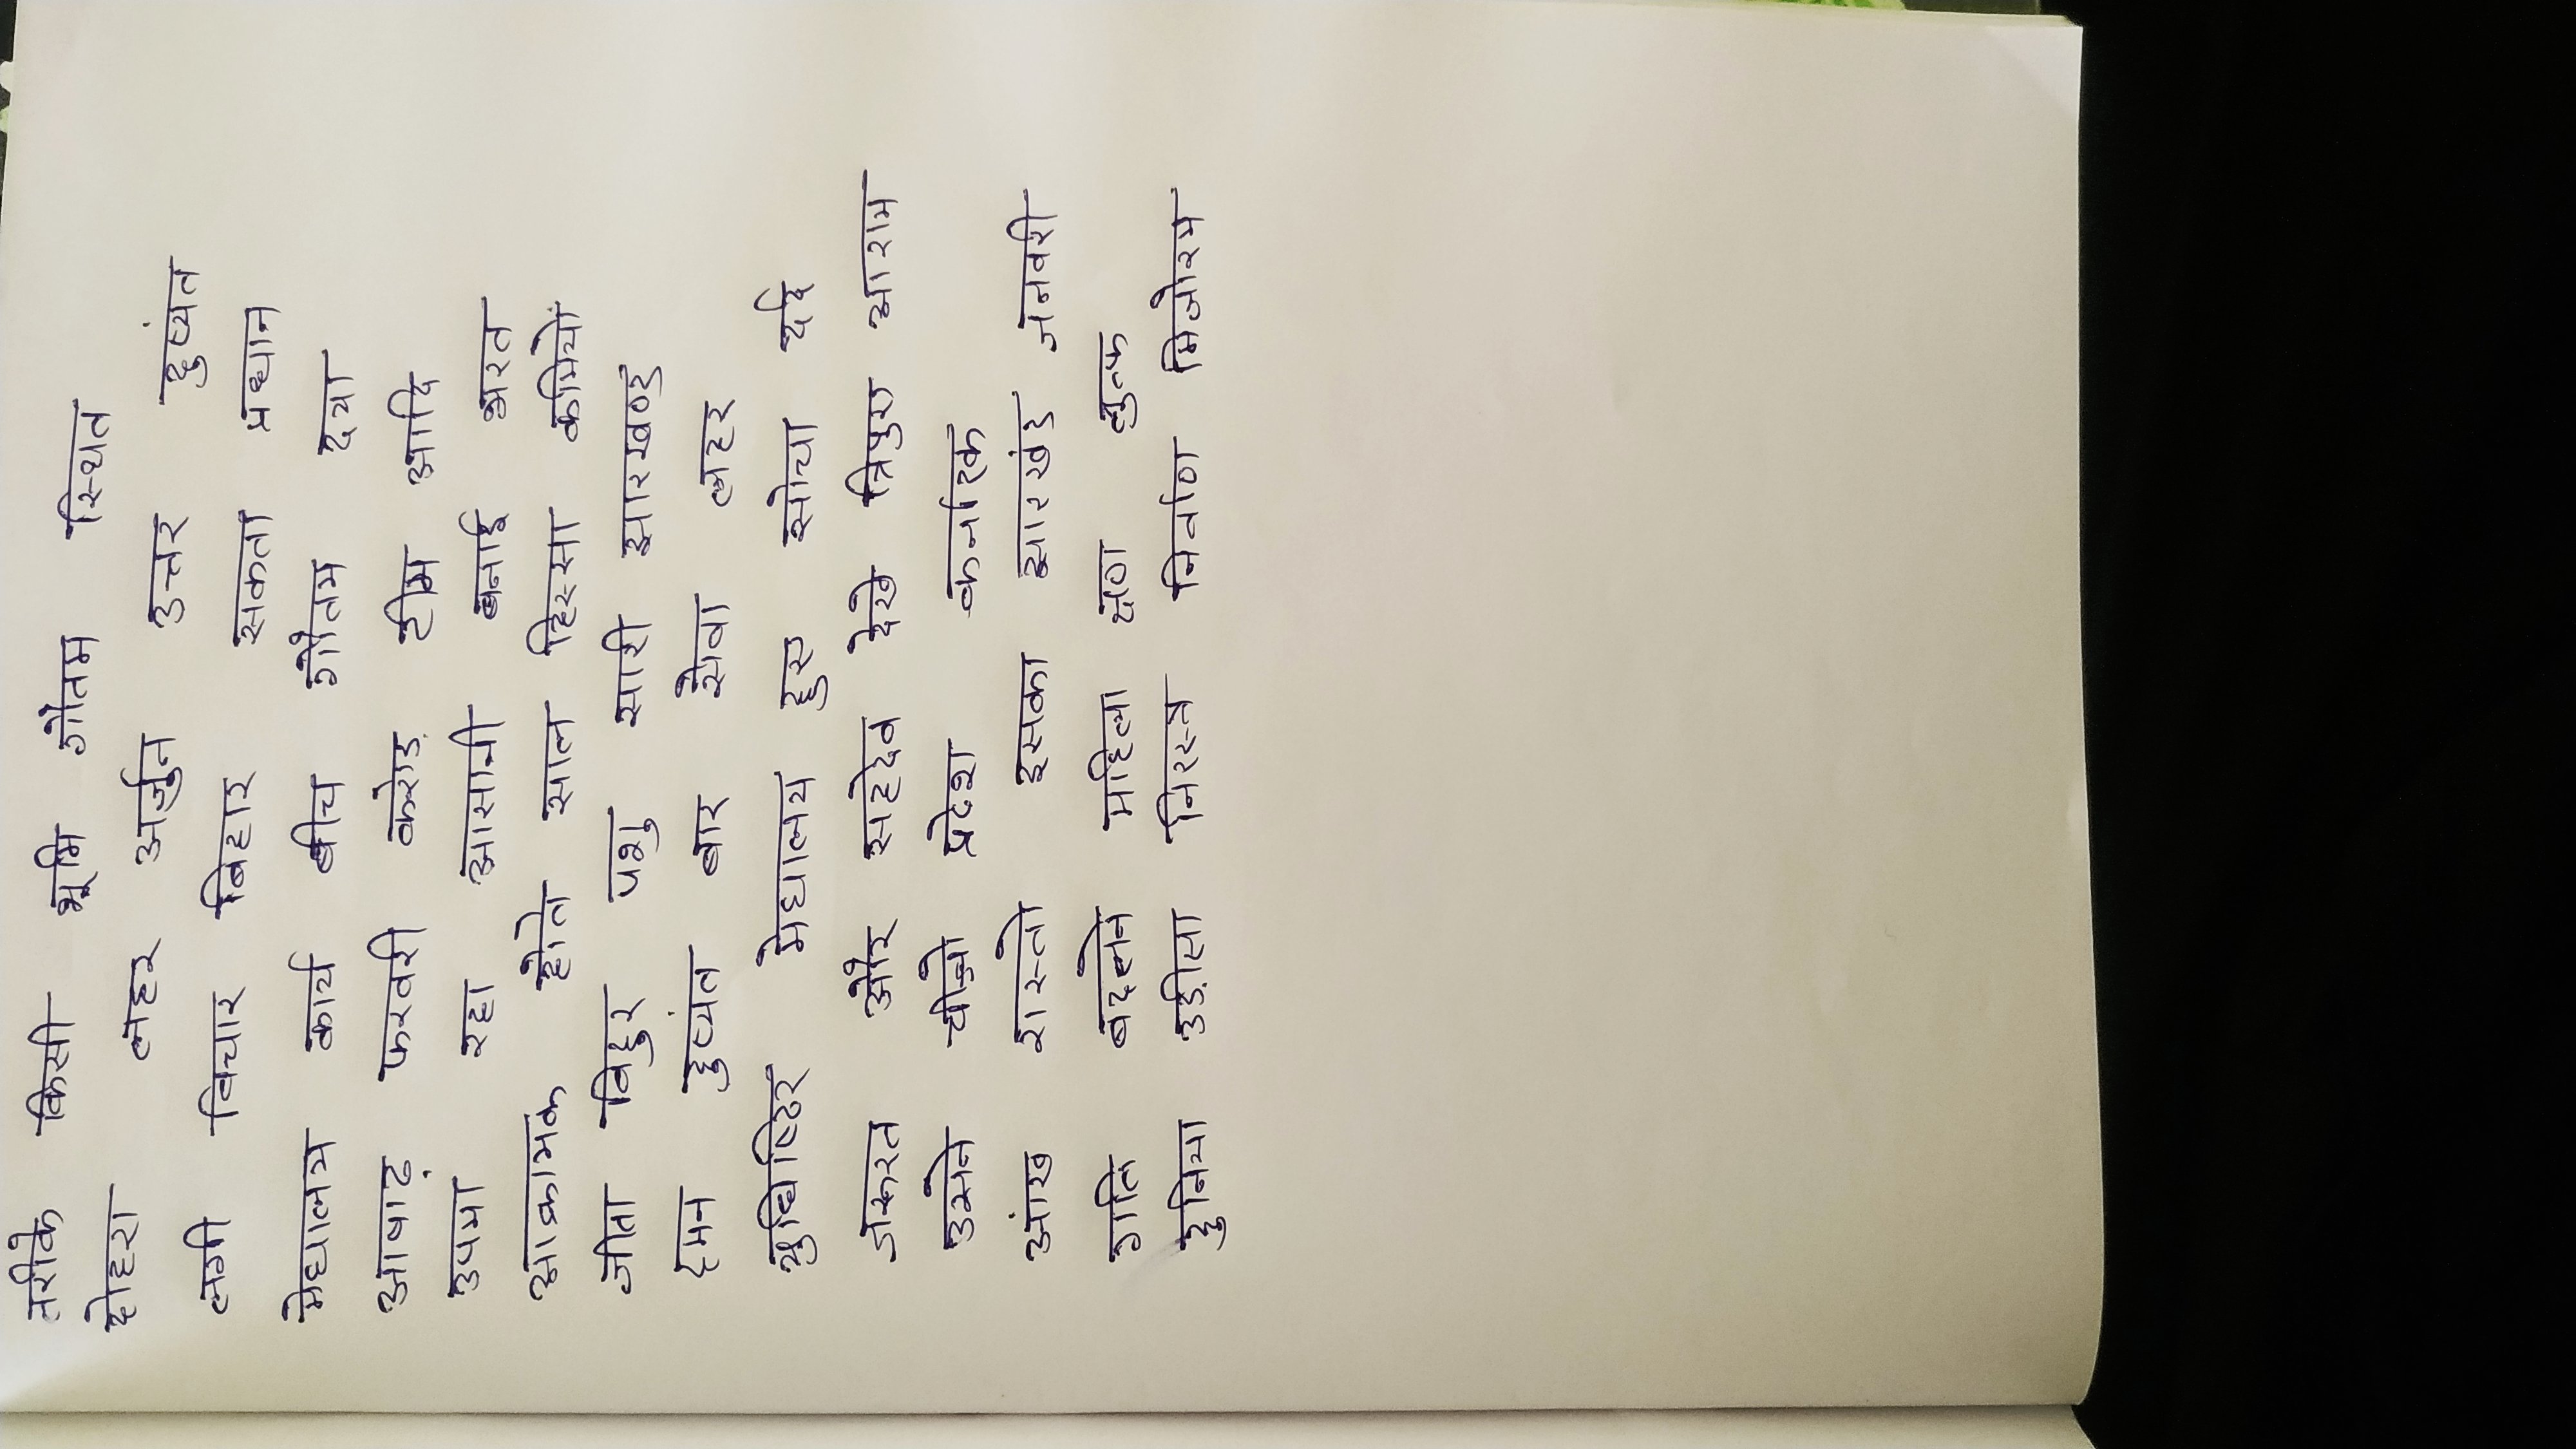 तरीके किसी भूमि गौतम स्थित
दोहरा लहर अर्जुन उत्तर दुष्यंत
लगी विचार बिहार सकता प्रधान
मेघालय कार्य बीच गौतम दया
आषाढ़ फरवरी करोड़ टीम आदि
उपमा रहा आसानी बनाई भरत
आक्रामक होते साल हिस्सा कमियों
जीता विदुर पशु सारी झारखण्ड
दमन दुष्यंत बार सेवा लहर
युधिष्ठिर मेघालय हुए सोचा दर्द
जरूरत और सहदेव देखे त्रिपुरा आराम
उसने चीजो प्रदेश कर्नाटक
आंख रास्तो इसका झारखंड जनवरी
गति बदलने महिला क्षण लुत्फ
दुनिया उड़ीसा निरस्त्र निर्वाण मिजोरम